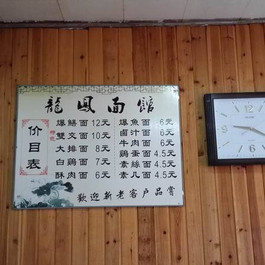 龍鳳面館
价目表
爆鱔面 12元
雙交面 10元
大排面 8元
白鷄面 7元
酥肉面 6元
爆魚面 6元
鹵汁面 6元
牛肉面 6元
鷄蛋面 4.5元
素几面 4.5元
歡迎新老客户品嘗